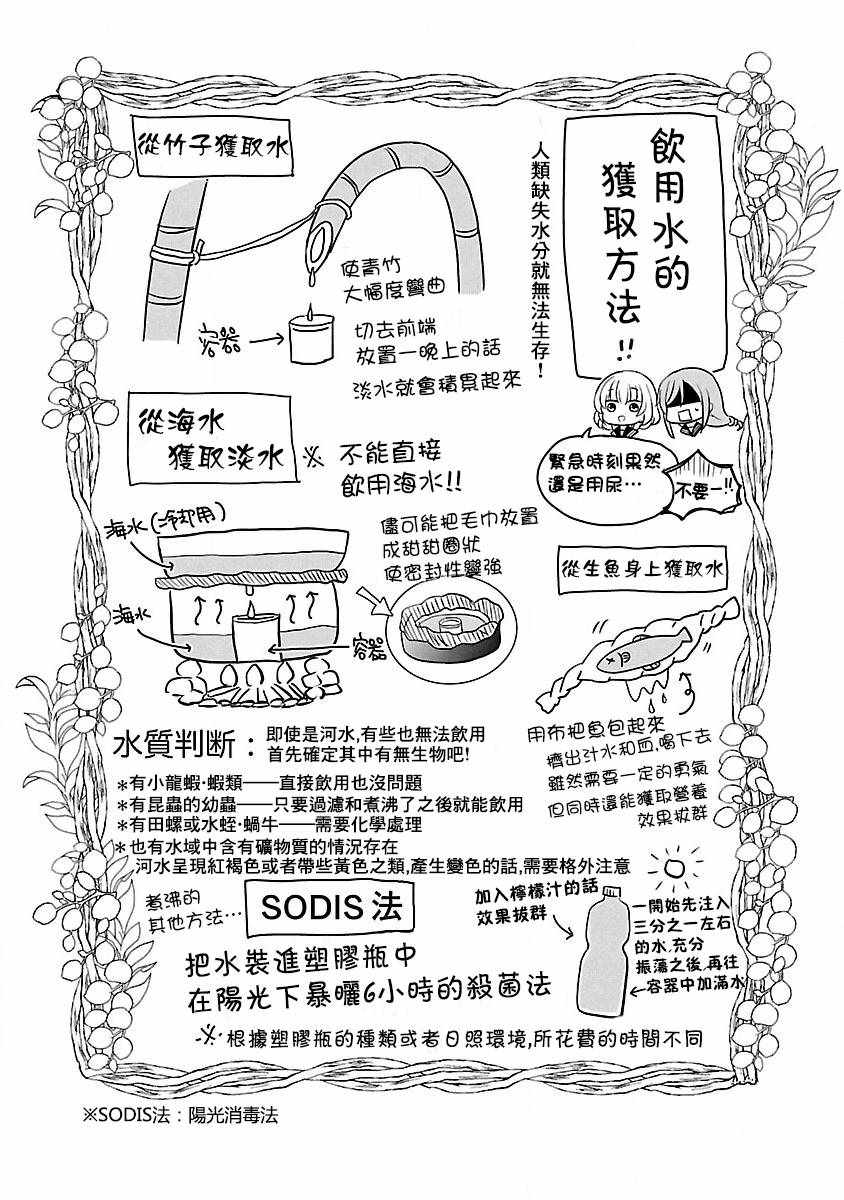 飲用水的
獲取方法!!
人類缺失水分就無法生存!
從竹子獲取水
使青竹
大幅度彎曲
容器
切去前端
放置一晚上的話
淡水就會積累起來
緊急時刻果然
還是用尿…
不要一!!
從海水
獲取淡水
※不能直接
飲用海水!!
海水(冷却用)
海水
容器
儘可能把毛巾放置
成甜甜圈狀
使密封性變強
從生魚身上獲取水
用布把魚包起來
擠出汁水和血,喝下去
雖然需要一定的勇氣
但同時還能獲取營養
效果拔群
水質判断：
即使是河水,有些也無法飲用
首先確定其中有無生物吧!
＊有小龍蝦·蝦類——直接飲用也沒問題
＊有昆蟲的幼蟲——只要過濾和煮沸了之後就能飲用
＊有田螺或水蛭·蝸牛——需要化學處理
＊也有水域中含有礦物質的情況存在
河水呈現紅褐色或者帶些黃色之類,產生變色的話,需要格外注意
煮沸的
其他方法…
SODIS 法
把水裝進塑膠瓶中
在陽光下暴曬6小時的殺菌法
加入檸檬汁的話
效果拔群
一開始先注入
三分之一左右
的水,充分
振蕩之後,再往
容器中加滿水
※根據塑膠瓶的種類或者日照環境,所花費的時間不同
※SODIS法：陽光消毒法